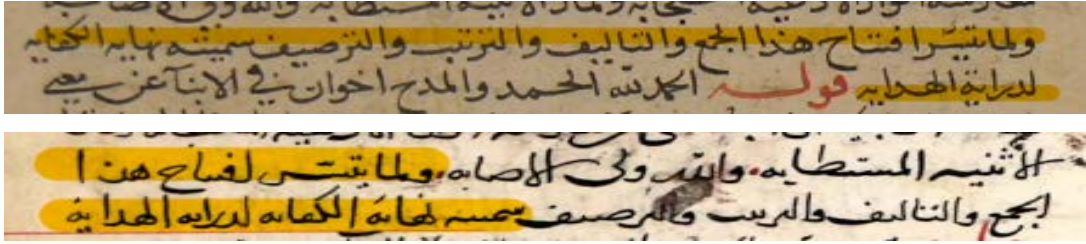 ولما تيسر افتتاح هذا الجمع والتاليف والترتيب والترصيف سميته نهاية الكفايه
لدراية الهدايه قوله الحمد لله الحمد والمدح اخوان في الانبآء عن معنى
الاثنيه المستطابه والله ولى الاصابه ولما يتيسر لفتتاح هذا
الجمع والتاليف والتريب والترصيف سميته نهاية الكفايه لدرايه الهداية